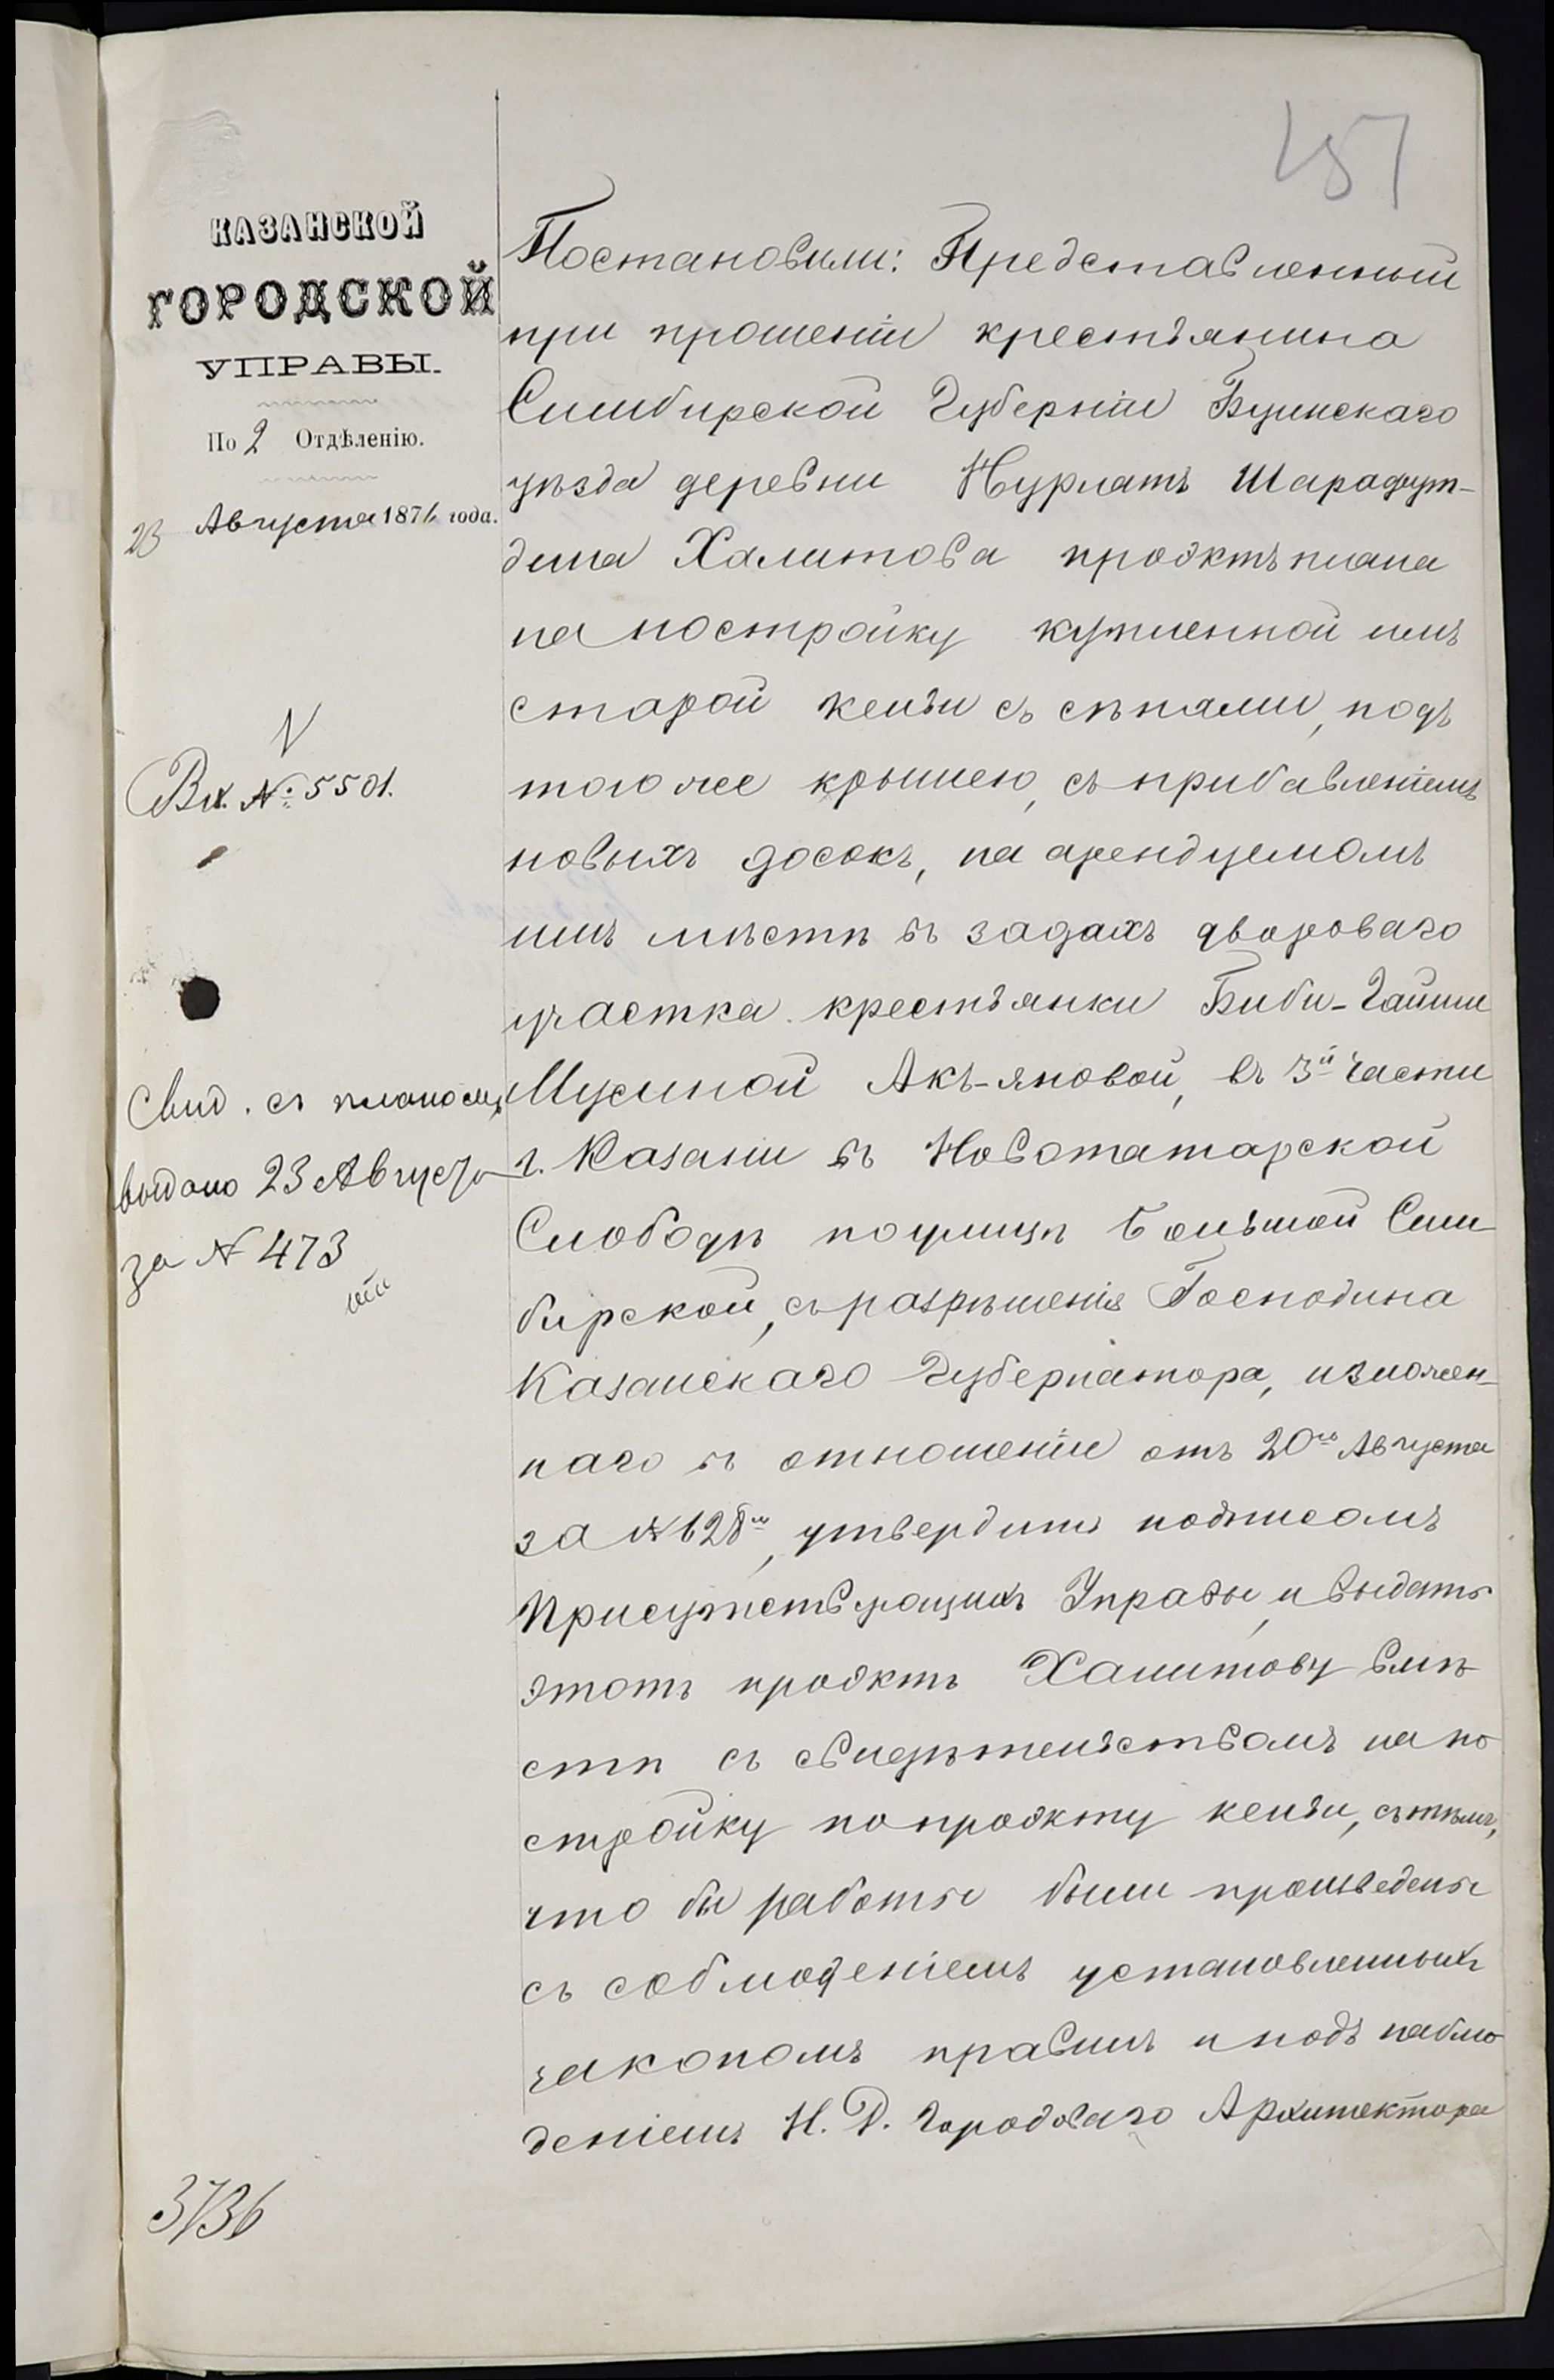 КАЗАНСКОЙ
ГОРОДСКОЙ
УПРАВЫ.
По 2 Отдѣленію.
23 Августа 1871 года.
Вх. №: 5501.
Свид. съ планомъ
выдано 23 Августа
за № 473
3736
Постановили: Представленный
при прошеніи крестьянина
Симбирской Губерніи Буинскаго
уѣзда деревни Нурлатъ Шарафут-
дина Халитова проэктъ плана
на постройку купленной имъ
старой кельи съ сѣнями, подъ
тою же крышею, съ прибавленіемъ
новыхъ досокъ, на арендуемомъ
имъ мѣстѣ въ задахъ двороваго
участка крестьянки Биби-Гайши
Мусиной Акъ-яновой, въ 3й части
г. Казани въ Новотатарской
Слободѣ по улицѣ Большой Сим-
бирской, съ разрѣшенія Господина
Казанскаго Губернатора, изложен-
наго въ отношеніи отъ 20го Августа
за № утвердить подписомъ
Присутствующихъ Управы, и выдать
этотъ проэктъ Халитову вмѣ-
стѣ съ свидѣтельствомъ на по-
стройку по проэкту кельи, съ тѣмъ,
что бы работы были произведены
съ соблюденіемъ установленныхъ
закономъ правилъ и подъ наблю-
деніемъ И. Д. Городоваго Архитектора